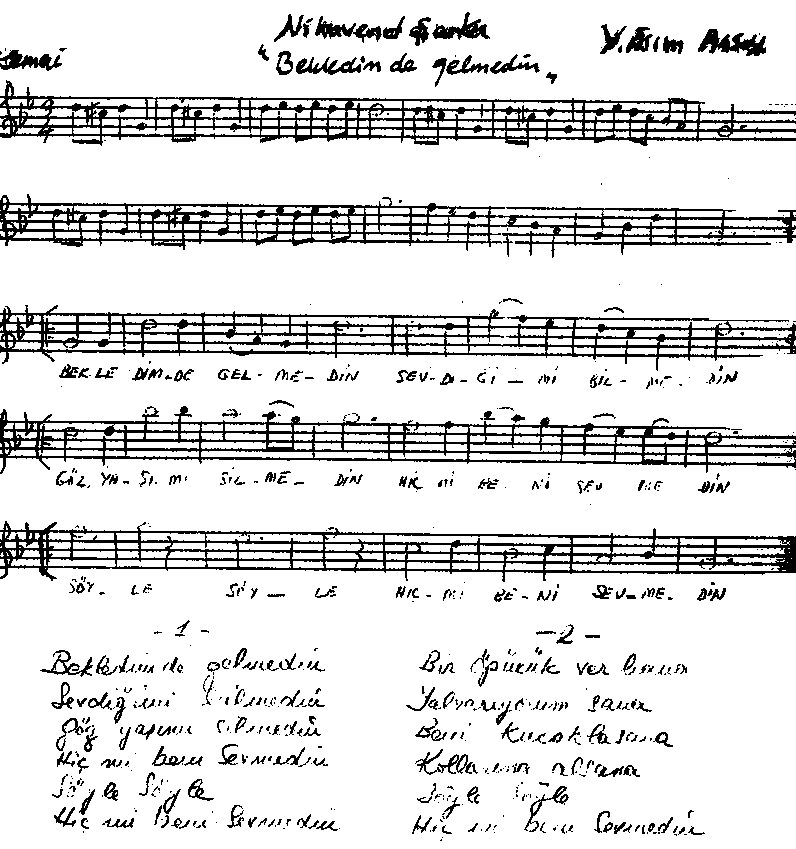 Nihavend Şarkı
Y. Asım Arsoy
Semai
"Bekledim de gelmedin"
BEK-LE DİM-DE GEL-ME-DİN SEV-Dİ-Gİ-Mİ BİL-ME-DİN
GÖZ YA-Şİ-Mİ SİL-ME-DİN HİÇ Mİ BE-Nİ SEV ME DİN
SÖY-LE SÖY-LE HİÇ-Mİ BE-Nİ SEV-ME-DİN
-1-
Bekledim de gelmedin
Sevdiğimi bilmedin
Göz yaşımı silmedin
Hiç mi beni Sevmedin
Söyle Söyle
Hiç mi Beni Sevmedin
-2-
Bir öpücük ver bana
Yalvarıyorum sana
Beni Kucaklasana
Kollarına alsana
Söyle Söyle
Hiç mi beni Sevmedin